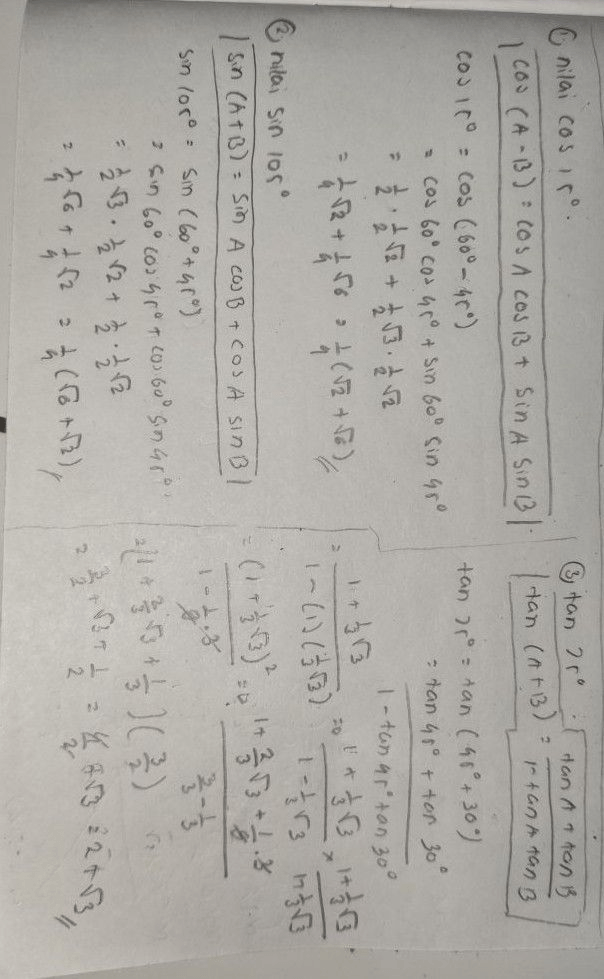 ① nilai cos 15°.
cos (A - B) = cos A cos B + sin A sin B
cos 15° = cos (60° - 45°)
= cos 60° cos 45° + sin 60° sin 45°
= 1/2 · 1/2 √2 + 1/2 √3 · 1/2 √2
= 1/4 √2 + 1/4 √6 = 1/4 (√2 + √6) //
② nilai sin 105°
sin (A+B) = sin A cos B + cos A sin B
sin 105° = sin (60° + 45°)
= sin 60° cos 45° + cos 60° sin 45°.
= 1/2 √3 · 1/2 √2 + 1/2 · 1/2 √2
= 1/4 √6 + 1/4 √2 = 1/4 (√6 + √2) //
③ tan 75°.
tan (A+B) = tan A + tan B / 1 - tan A tan B
tan 75° = tan (45° + 30°)
= tan 45° + tan 30° / 1 - tan 45° tan 30°
= 1 + 1/3 √3 / 1 - (1) (1/3 √3) => 1 + 1/3 √3 / 1 - 1/3 √3 × 1 + 1/3 √3 / 1 + 1/3 √3
= (1 + 1/3 √3)² / 1 - 1/9 · 3 => 1 + 2/3 √3 + 1/9 · 3 / 3/3 - 1/3
= (1 + 2/3 √3 + 1/3) (3/2)
= 3/2 + √3 + 1/2 = 4/2 + √3 = 2 + √3 //